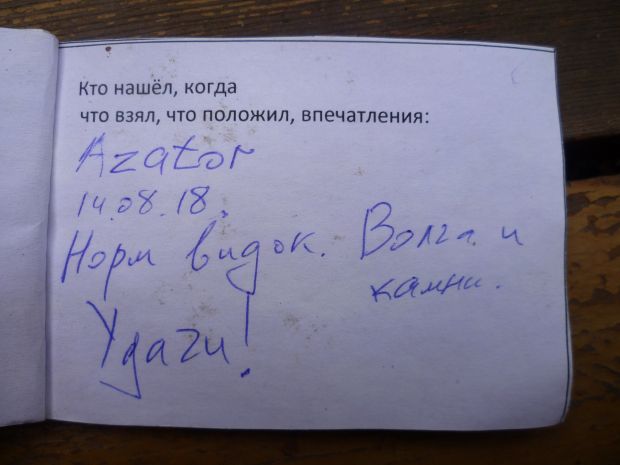 Кто нашёл, когда
что взял, что положил, впечатления:
Azator
14.08.18.
Норм видок. Волга и
камни.
Удачи!